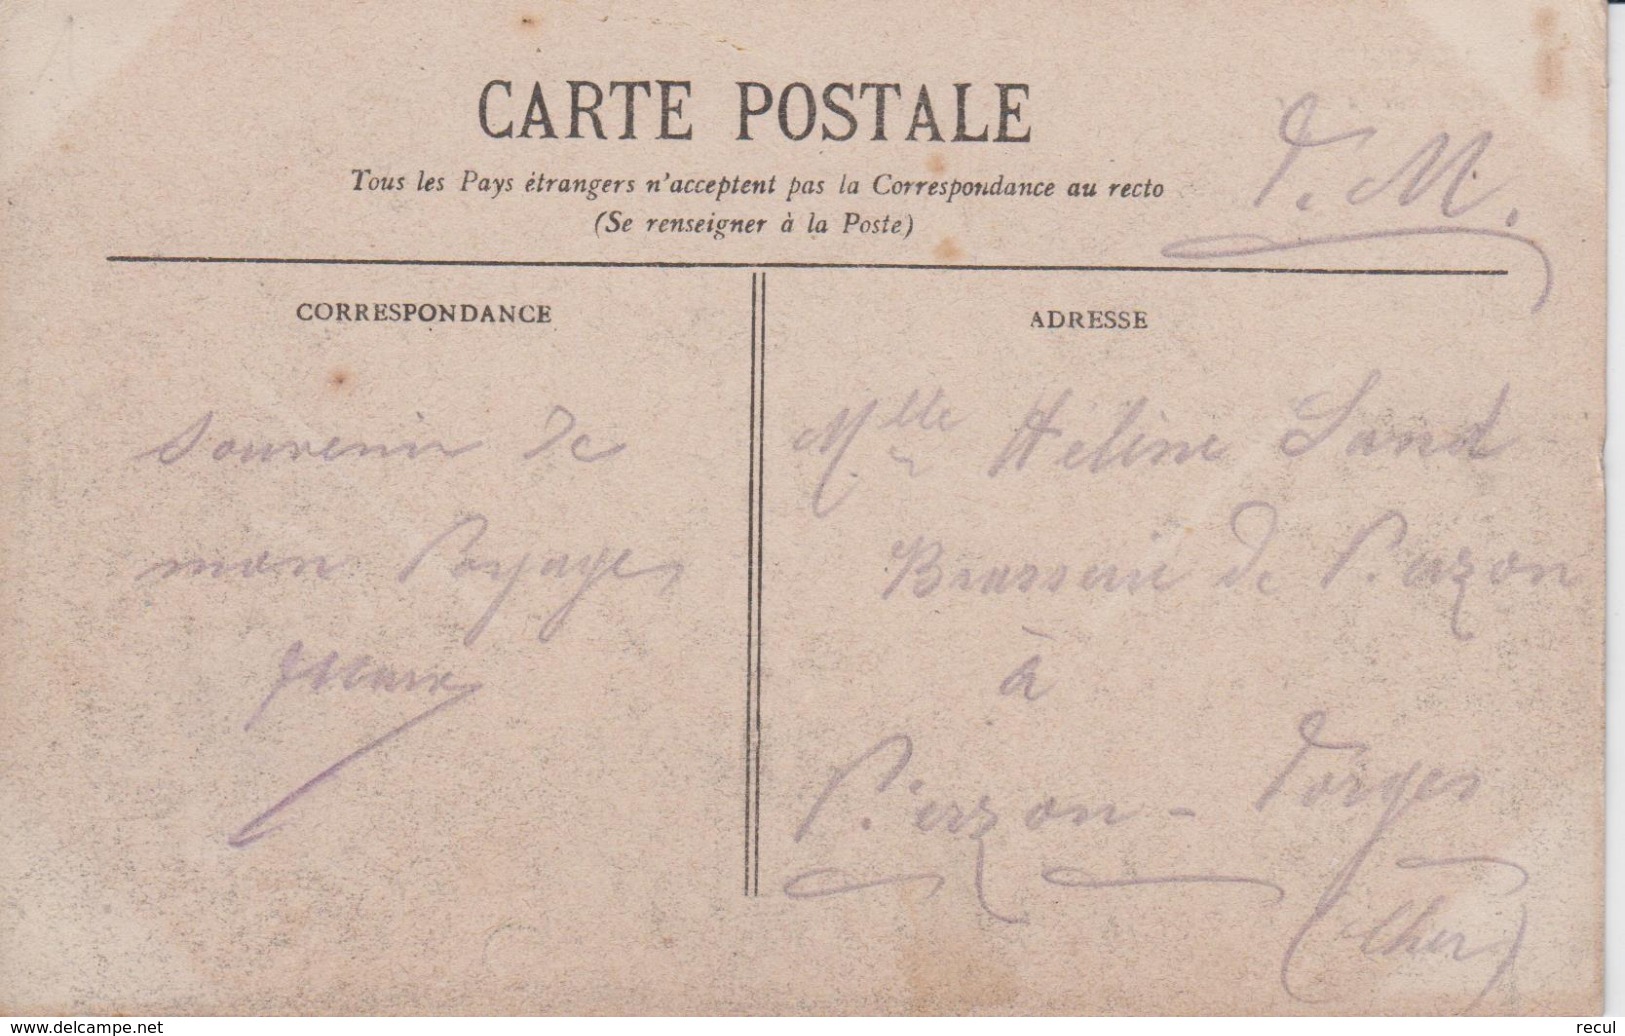 CARTE POSTALE
F. M.
Tous les Pays étrangers n'acceptent pas la Correspondance au recto
(Se renseigner à la Poste)
CORRESPONDANCE
souvenir de
mon Voyage,
ADRESSE
Mlle Hélène Sand
Brasserie de Vierzon
à
Vierzon - Forges
(Cher)
www.delcampe.net
recul